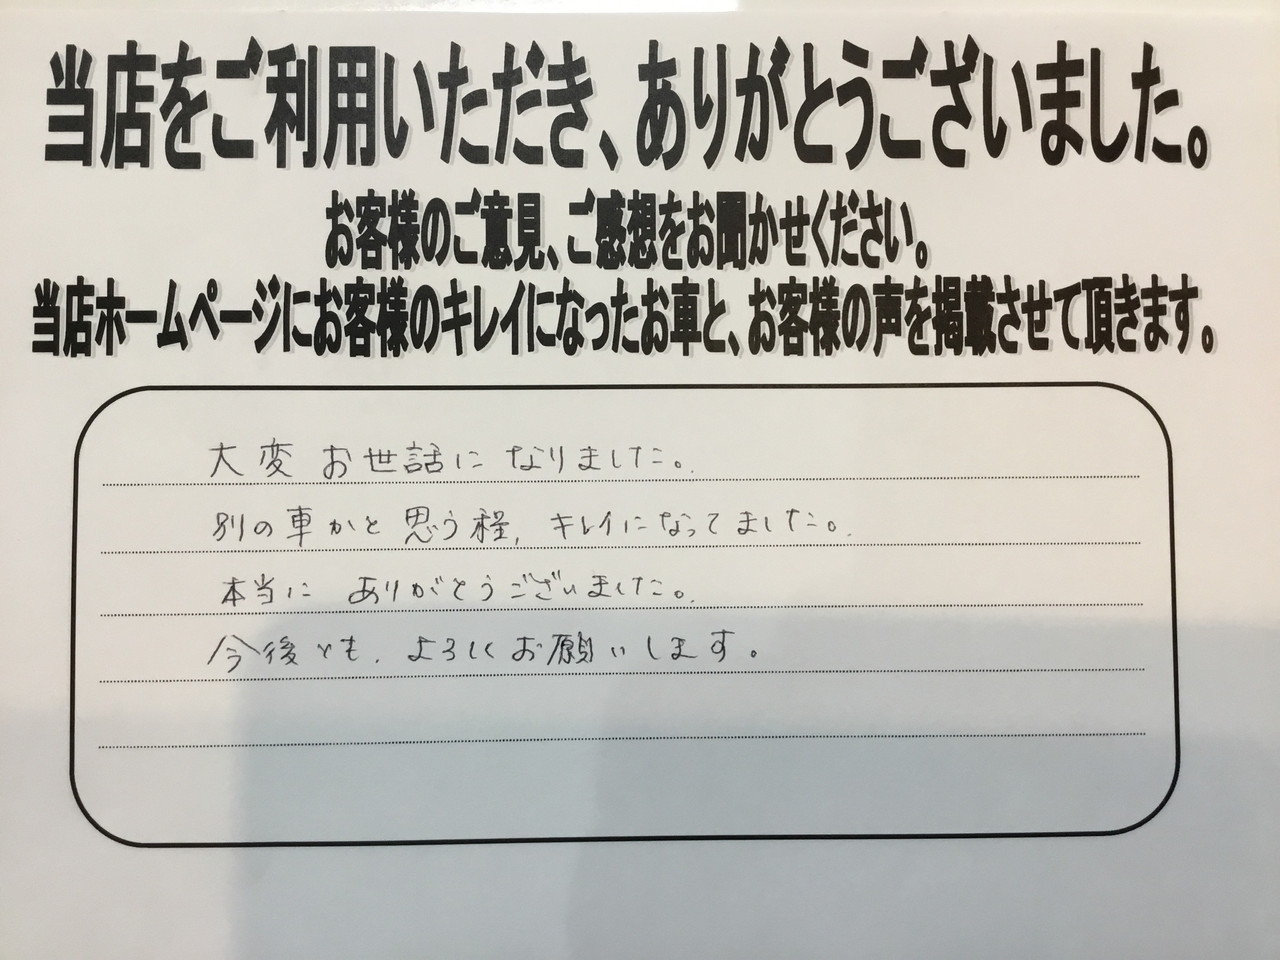 当店をご利用いただき、ありがとうございました。
お客様のご意見、ご感想をお聞かせください。
当店ホームページにお客様のキレイになったお車と、お客様の声を掲載させて頂きます。
大変お世話になりました。
別の車かと思う程、キレイになってました。
本当にありがとうございました。
今後とも、よろしくお願いします。